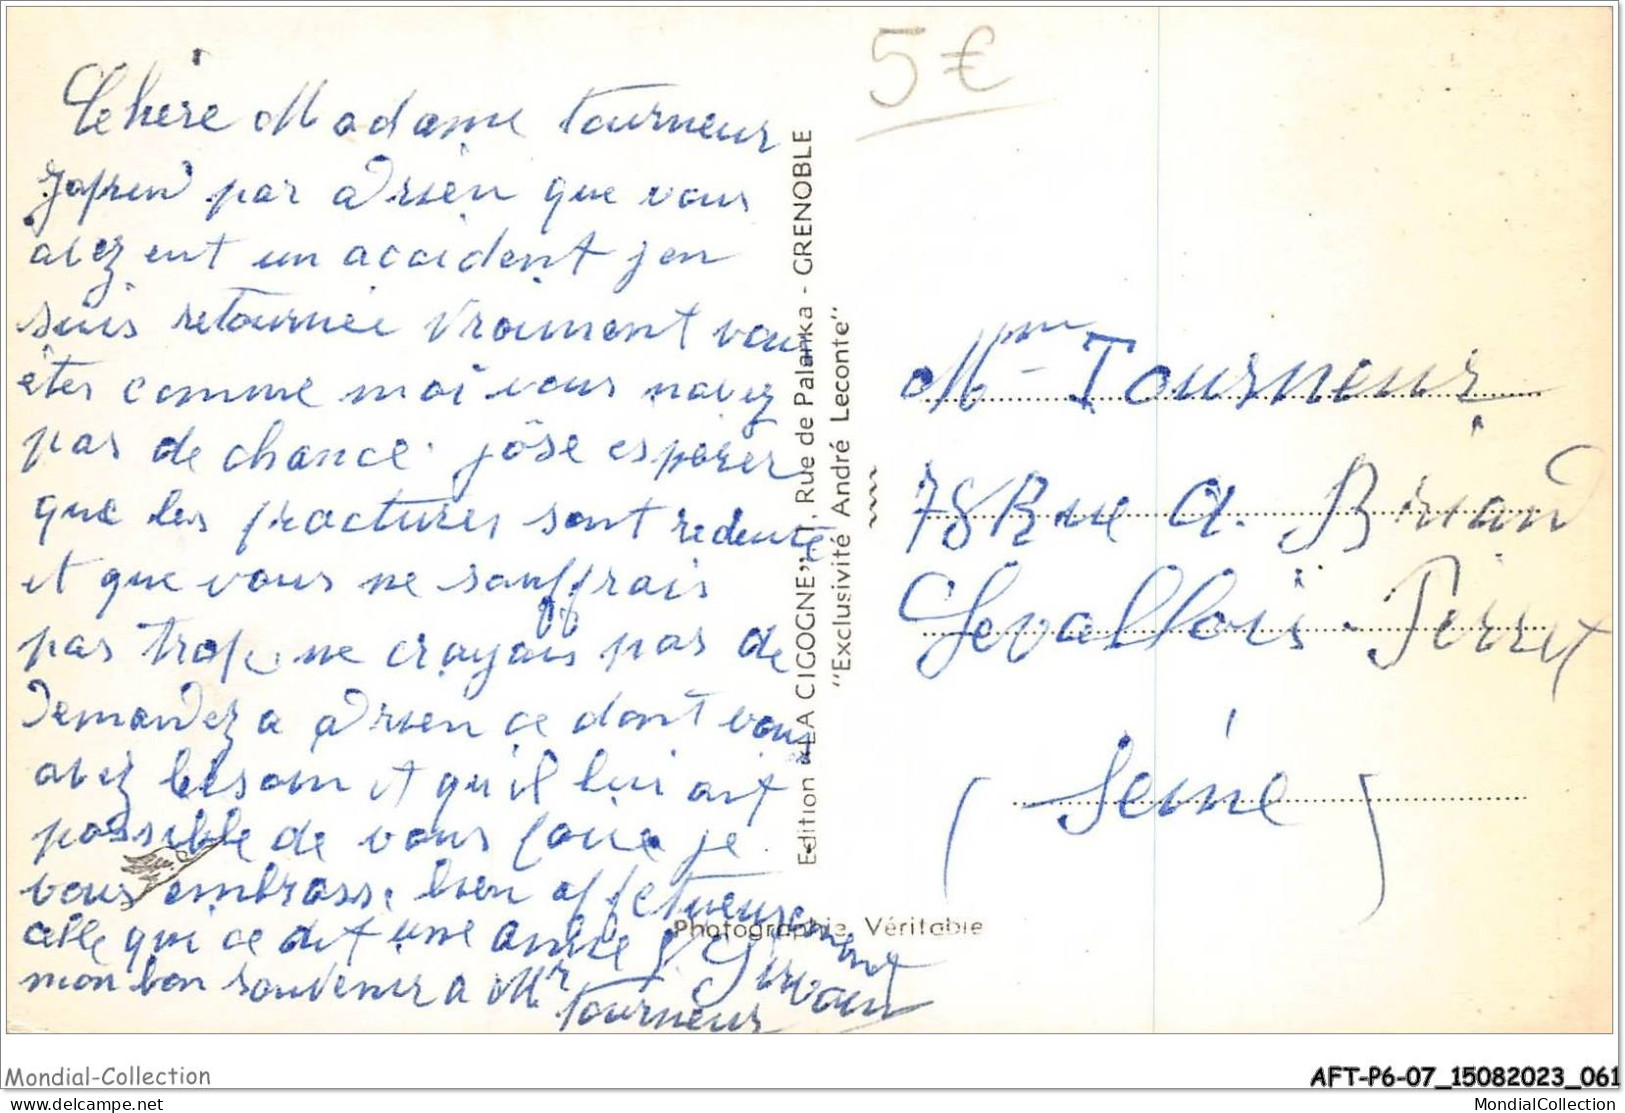 Chère Madame Tourneur
japrend par adrien que vous
avez eut un accident jen
suis retournée vraiment vous
êtes comme moi vous navez
pas de chance. jôse esperer
que les fractures sont reduite
et que vous ne souffrais
pas trop, ne crayais pas de
demandez a adrien ce dont vous
avez besoin et qu'il lui ait
possible de vous faire je
vous embrasse bien affetueusement
celle qui ce dit une amie
mon bon souvenir a Mr
Tourneur
5€
Edition "LA CIGOGNE", 1, Rue de Palanka - GRENOBLE
"Exclusivité André Leconte"
Photographie Véritable
Mme Tourneur
78 Rue A. Briand
Levallois-Perret
(Seine)
Mondial-Collection
AFT-P6-07_15082023_061
www.delcampe.net
MondialCollection